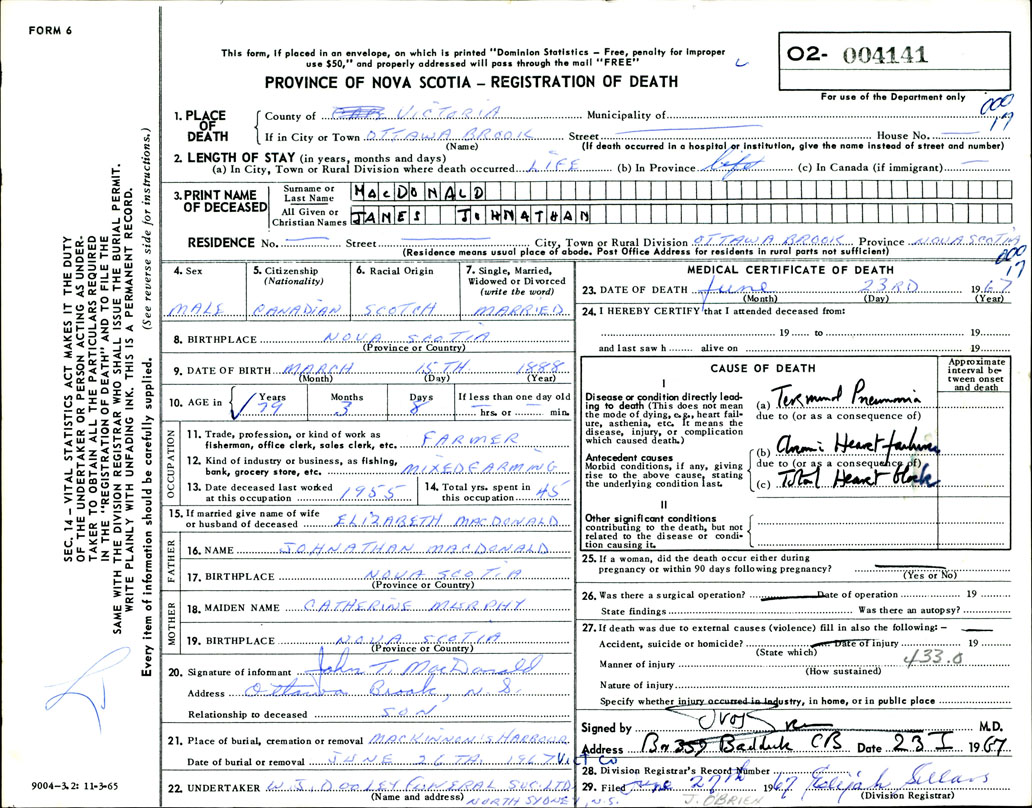 FORM 6
This form, if placed in an envelope, on which is printed "Dominion Statistics – Free, penalty for improper
use $50," and properly addressed will pass through the mail "FREE"
PROVINCE OF NOVA SCOTIA – REGISTRATION OF DEATH
O2- 004141
For use of the Department only
000
17
1. PLACE OF DEATH
County of VICTORIA Municipality of
If in City or Town OTTAWA BROOK Street House No.
(Name) (If death occurred in a hospital or institution, give the name instead of street and number)
2. LENGTH OF STAY (in years, months and days)
(a) In City, Town or Rural Division where death occurred LIFE (b) In Province life (c) In Canada (if immigrant) —
3. PRINT NAME OF DECEASED
Surname or Last Name MACDONALD
All Given or Christian Names JANES JOHNATHAN
RESIDENCE No. — Street — City, Town or Rural Division OTTAWA BROOK Province NOVA SCOTIA
(Residence means usual place of abode. Post Office Address for residents in rural parts not sufficient)
000
17
4. Sex 5. Citizenship (Nationality) 6. Racial Origin 7. Single, Married, Widowed or Divorced (write the word)
MALE CANADIAN SCOTCH MARRIED
8. BIRTHPLACE NOVA SCOTIA
(Province or Country)
9. DATE OF BIRTH MARCH 15TH 1888
(Month) (Day) (Year)
10. AGE in Years Months Days If less than one day old
79 3 8 hrs. or min.
OCCUPATION
11. Trade, profession, or kind of work as
fisherman, office clerk, sales clerk, etc. FARMER
12. Kind of industry or business, as fishing,
bank, grocery store, etc. MIXEDEARMING
13. Date deceased last worked
at this occupation 1955
14. Total yrs. spent in
this occupation 45
15. If married give name of wife
or husband of deceased ELIZABETH MACDONALD
FATHER
16. NAME JOHNATHAN MACDONALD
17. BIRTHPLACE NOVA SCOTIA
(Province or Country)
MOTHER
18. MAIDEN NAME CATHERINE MURPHY
19. BIRTHPLACE NOVA SCOTIA
(Province or Country)
20. Signature of informant John T. MacDonald
Address Ottawa Brook, N.S.
Relationship to deceased SON
21. Place of burial, cremation or removal MACKINNON'S HARBOUR
Vict Co
Date of burial or removal JUNE 26TH 1967
22. UNDERTAKER W.J. DOOLEY FUNERAL SVC. LTD.
(Name and address) NORTH SYDNEY, N.S.
MEDICAL CERTIFICATE OF DEATH
23. DATE OF DEATH June 23RD 1967
(Month) (Day) (Year)
24. I HEREBY CERTIFY that I attended deceased from:
19 to 19
and last saw h alive on 19
CAUSE OF DEATH
Approximate interval between onset and death
I
Disease or condition directly leading to death (This does not mean the mode of dying, e.g., heart failure, asthenia, etc. It means the disease, injury, or complication which caused death.)
(a) Terminal Pneumonia
due to (or as a consequence of)
Antecedent causes
Morbid conditions, if any, giving rise to the above cause, stating the underlying condition last.
(b) Chronic Heart failure
due to (or as a consequence of)
(c) Total Heart block
II
Other significant conditions
contributing to the death, but not related to the disease or condition causing it.
25. If a woman, did the death occur either during
pregnancy or within 90 days following pregnancy?
(Yes or No)
26. Was there a surgical operation? Date of operation 19
State findings Was there an autopsy?
27. If death was due to external causes (violence) fill in also the following: –
Accident, suicide or homicide? Date of injury 19
(State which)
433.0
Manner of injury
(How sustained)
Nature of injury
Specify whether injury occurred in industry, in home, or in public place
Signed by M.D.
Address Box 359 Baddeck CB Date 23 I 1967
28. Division Registrar's Record Number
29. Filed June 27th 1967 Elijah Sellars
(Division Registrar)
J. O'BRIEN
SEC. 14 – VITAL STATISTICS ACT MAKES IT THE DUTY
OF THE UNDERTAKER OR PERSON ACTING AS UNDERTAKER
TO OBTAIN ALL THE PARTICULARS REQUIRED
IN THE "REGISTRATION OF DEATH" AND TO FILE THE
SAME WITH THE DIVISION REGISTRAR WHO SHALL ISSUE THE BURIAL PERMIT.
WRITE PLAINLY WITH UNFADING INK. THIS IS A PERMANENT RECORD.
Every item of information should be carefully supplied. (See reverse side for instructions.)
9004-3.2: 11-3-65